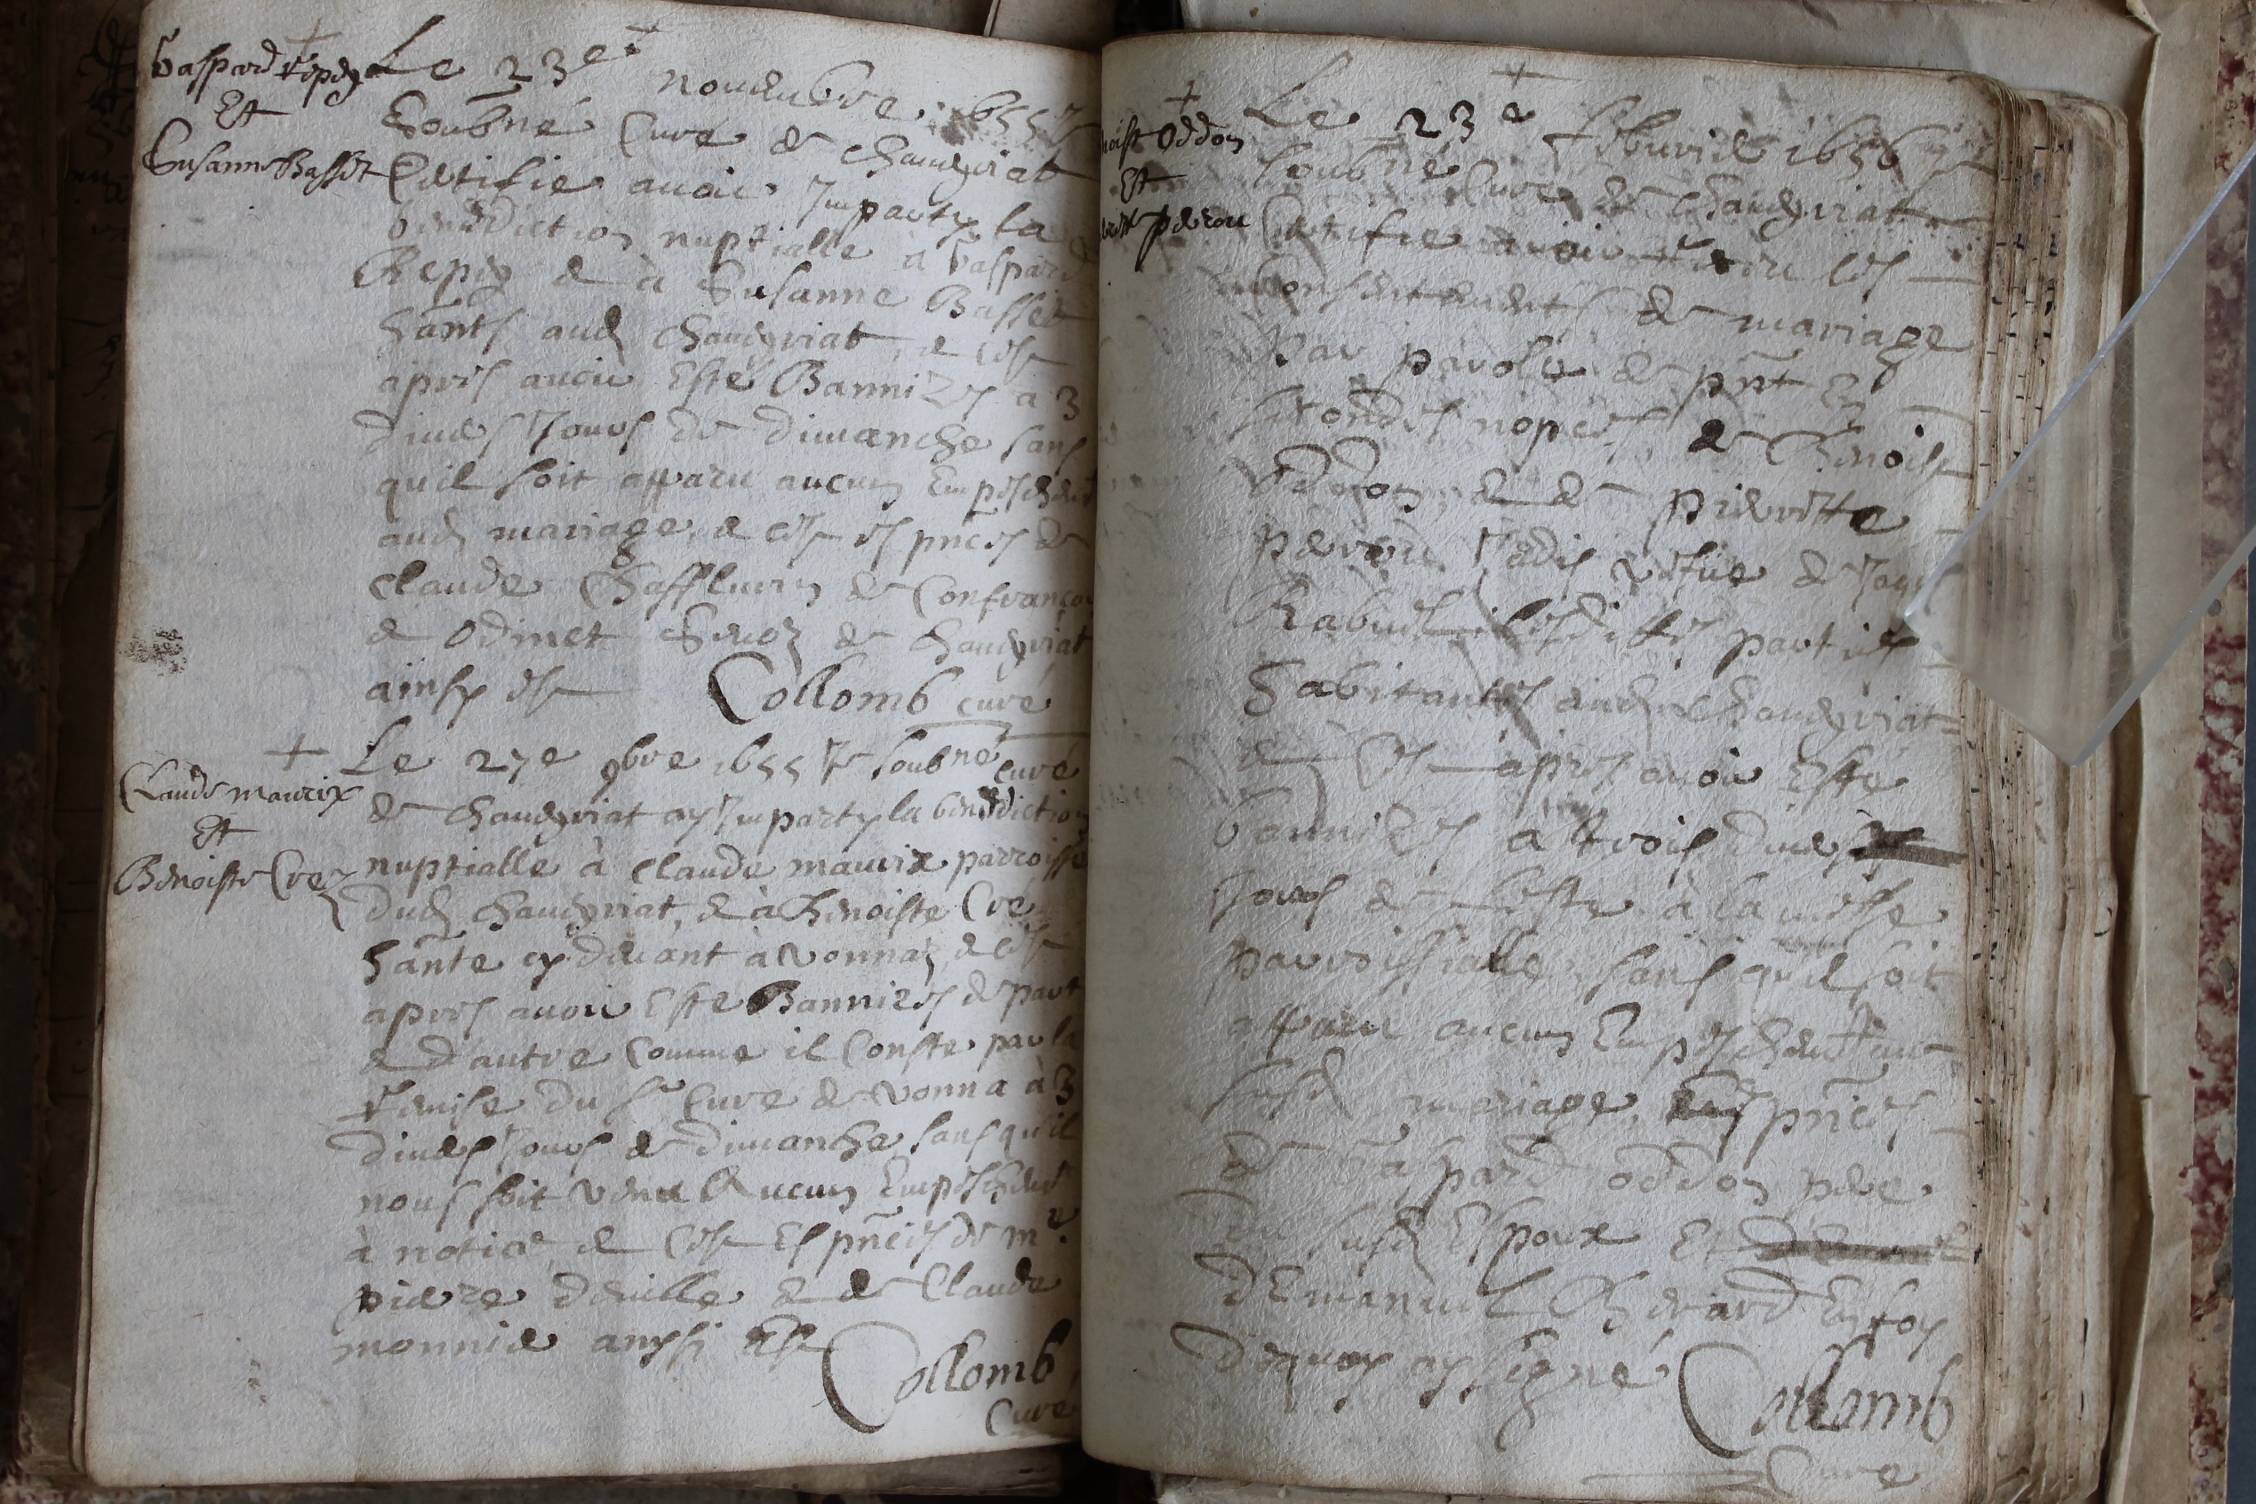 Gaspard Repey
Et
Susanne Basset
Le 23e novembre 1655 Je
Soubné Curé de chaveyriat
Certifie avoir Imparty la
benediction nuptialle à Gaspard
Repey & à Susanne Basset
hants aud chaveyriat, & ce
apres avoir Esté Bannizes a 3
divers Jours de dimanche sans
quil soit apparu aucun Empeschemt
aud mariage, & ce es pnces de
claude Chafflurin de Confrançon
& Odinet Sevoz de chaveyriat
ainsy est Collomb curé
Claude maurix
Et
Benoiste Crez
Le 27e 9bre 1655 Je Soubné curé
de chaveyriat ay Imparty la benediction
nuptialle à Claude maurix parroisse
dud chaveyriat, & à benoiste Cré
hante cy devant à vonnaz, & ce
apres avoir Esté Bannizes de part
& d'autre comme il Conste par la
remise du Sr Curé de vonna à 3
divers Jours de dimanche sans qu'il
nous soit venu Aucun Empeschemt
à notice, & ce Es pnces de mr
pierre deville & de Claude
monnier ainssi Est Collomb
Curé
noist Oddon
Et
perrou
Le 23e febvrier 1656 Je
soubné Curé de chaveyriat
Certifie avoir receu les
consentements de mariage
par parolle de pnt En
secondes nopces, de benoist
Oddon, & de pierrette
perrou Jadis vefve de Jaq
Rabuel lesdittes parties
habitantes aud chaveyriat
& ce apres avoir Esté
bannizes a trois divers
Jours de feste à la messe
parroissialle, sans qu'il soit
apparu aucun Empeschemt au
susd mariage, pnces
de Gaspard oddon pere
du susd Espoux Et
d'Emanuel Cherard En foy
dequoy ay signé Collomb
Curé